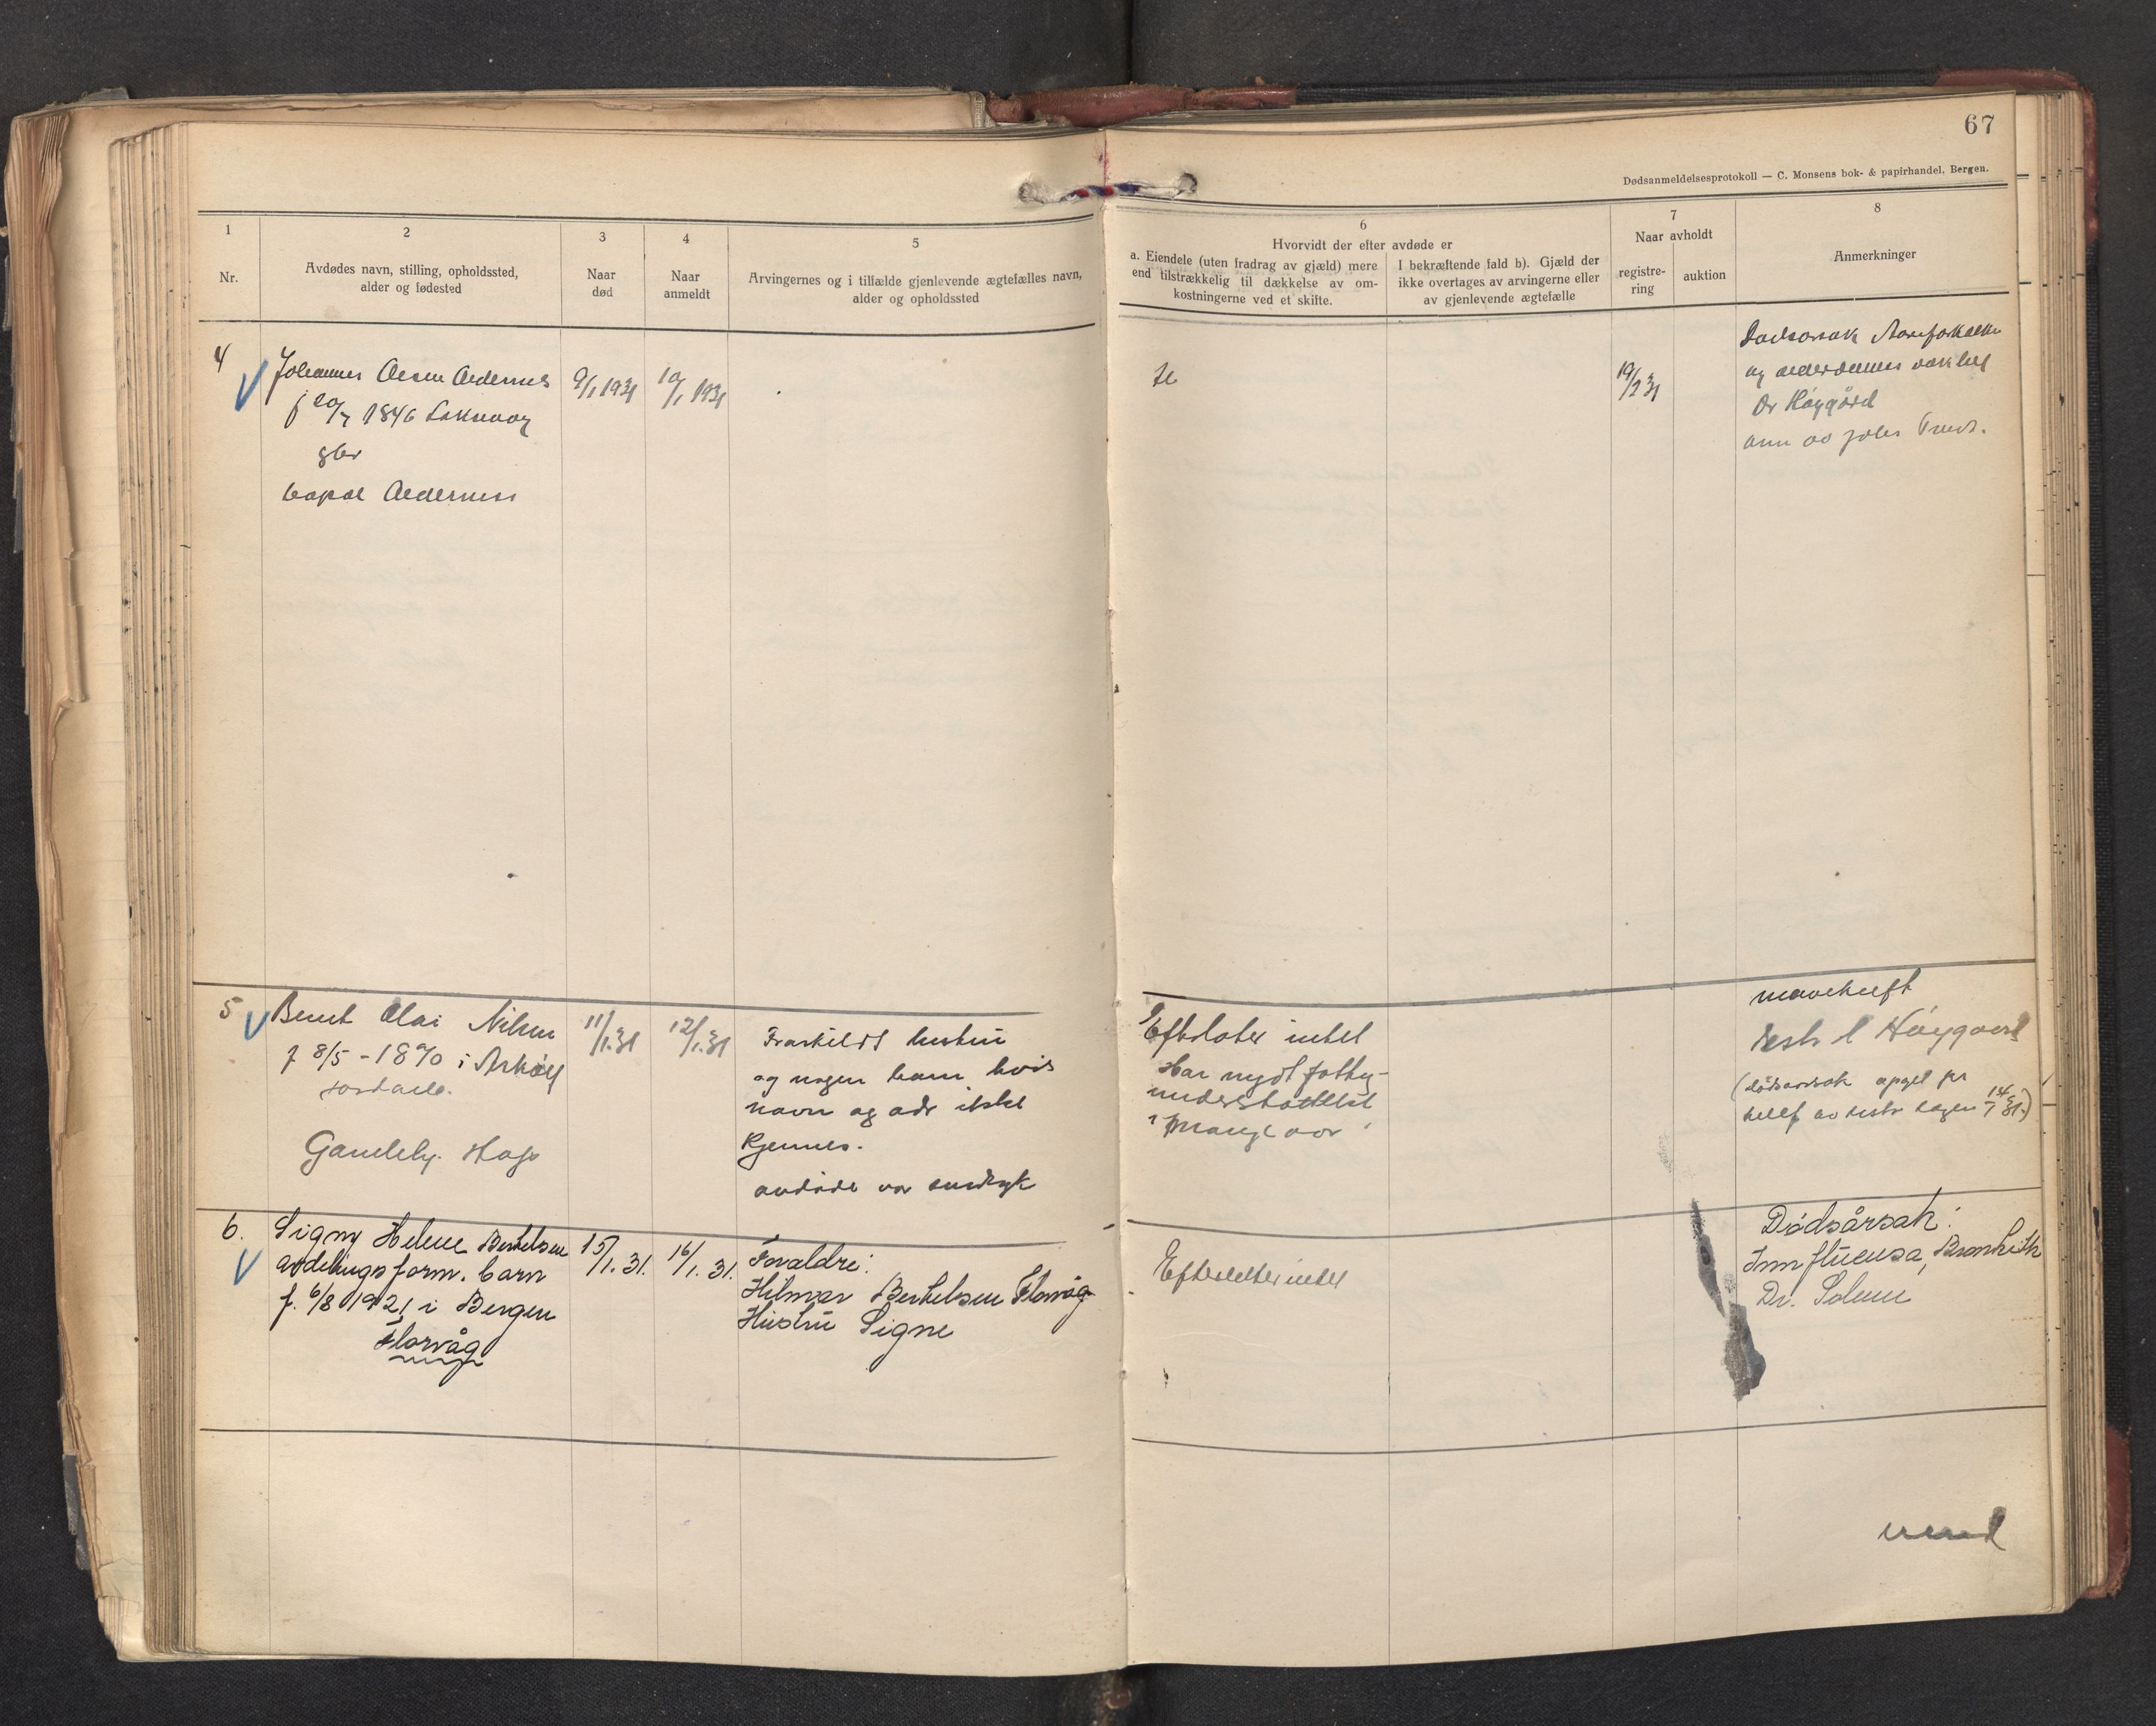 67
Dødsanmeldelsesprotokoll — C. Monsens bok- & papirhandel, Bergen.
1
Nr.
2
Avdødes navn, stilling, opholdssted,
alder og fødested
3
Naar
død
4
Naar
anmeldt
5
Arvingernes og i tilfælde gjenlevende ægtefælles navn,
alder og opholdssted
6
Hvorvidt der efter avdøde er
a. Eiendele (uten fradrag av gjæld) mere
end tilstrækkelig til dækkelse av om-
kostningerne ved et skifte.
I bekræftende fald b). Gjæld der
ikke overtages av arvingerne eller
av gjenlevende ægtefælle
7
Naar avholdt
registre-
ring
auktion
8
Anmerkninger
4
Johannes Olsen
f 20/7 1846
gbr
9/1 1931
10/1 1931
19/2 31
Dødsorsak
og
Dr Høygård
5
Bernt Olai Nilsen
f 8/5 - 1890 i Askøy
Hop
11/1.31
12/1.31
Fraskildt hustru
og nogen barn, hvis
navn og adr ikke
kjennes.
avdøde var
Efterlater intet
Har nydt fattig-
understøttelse
i mange aar
mavekreft
Høygaard
(dødsorsak opgit pr
telef av 14/1 31.)
6.
Signy Helene Berthelsen
avdelingsform. barn
f. 6/8 1921 i Bergen
Florvåg
15/1.31.
16/1.31.
Forældre:
Hilmar Berthelsen Florvåg
Hustru Signe
Efterlater intet
Dødsårsak:
Innfluensa, Bronkitt
Dr. Solem